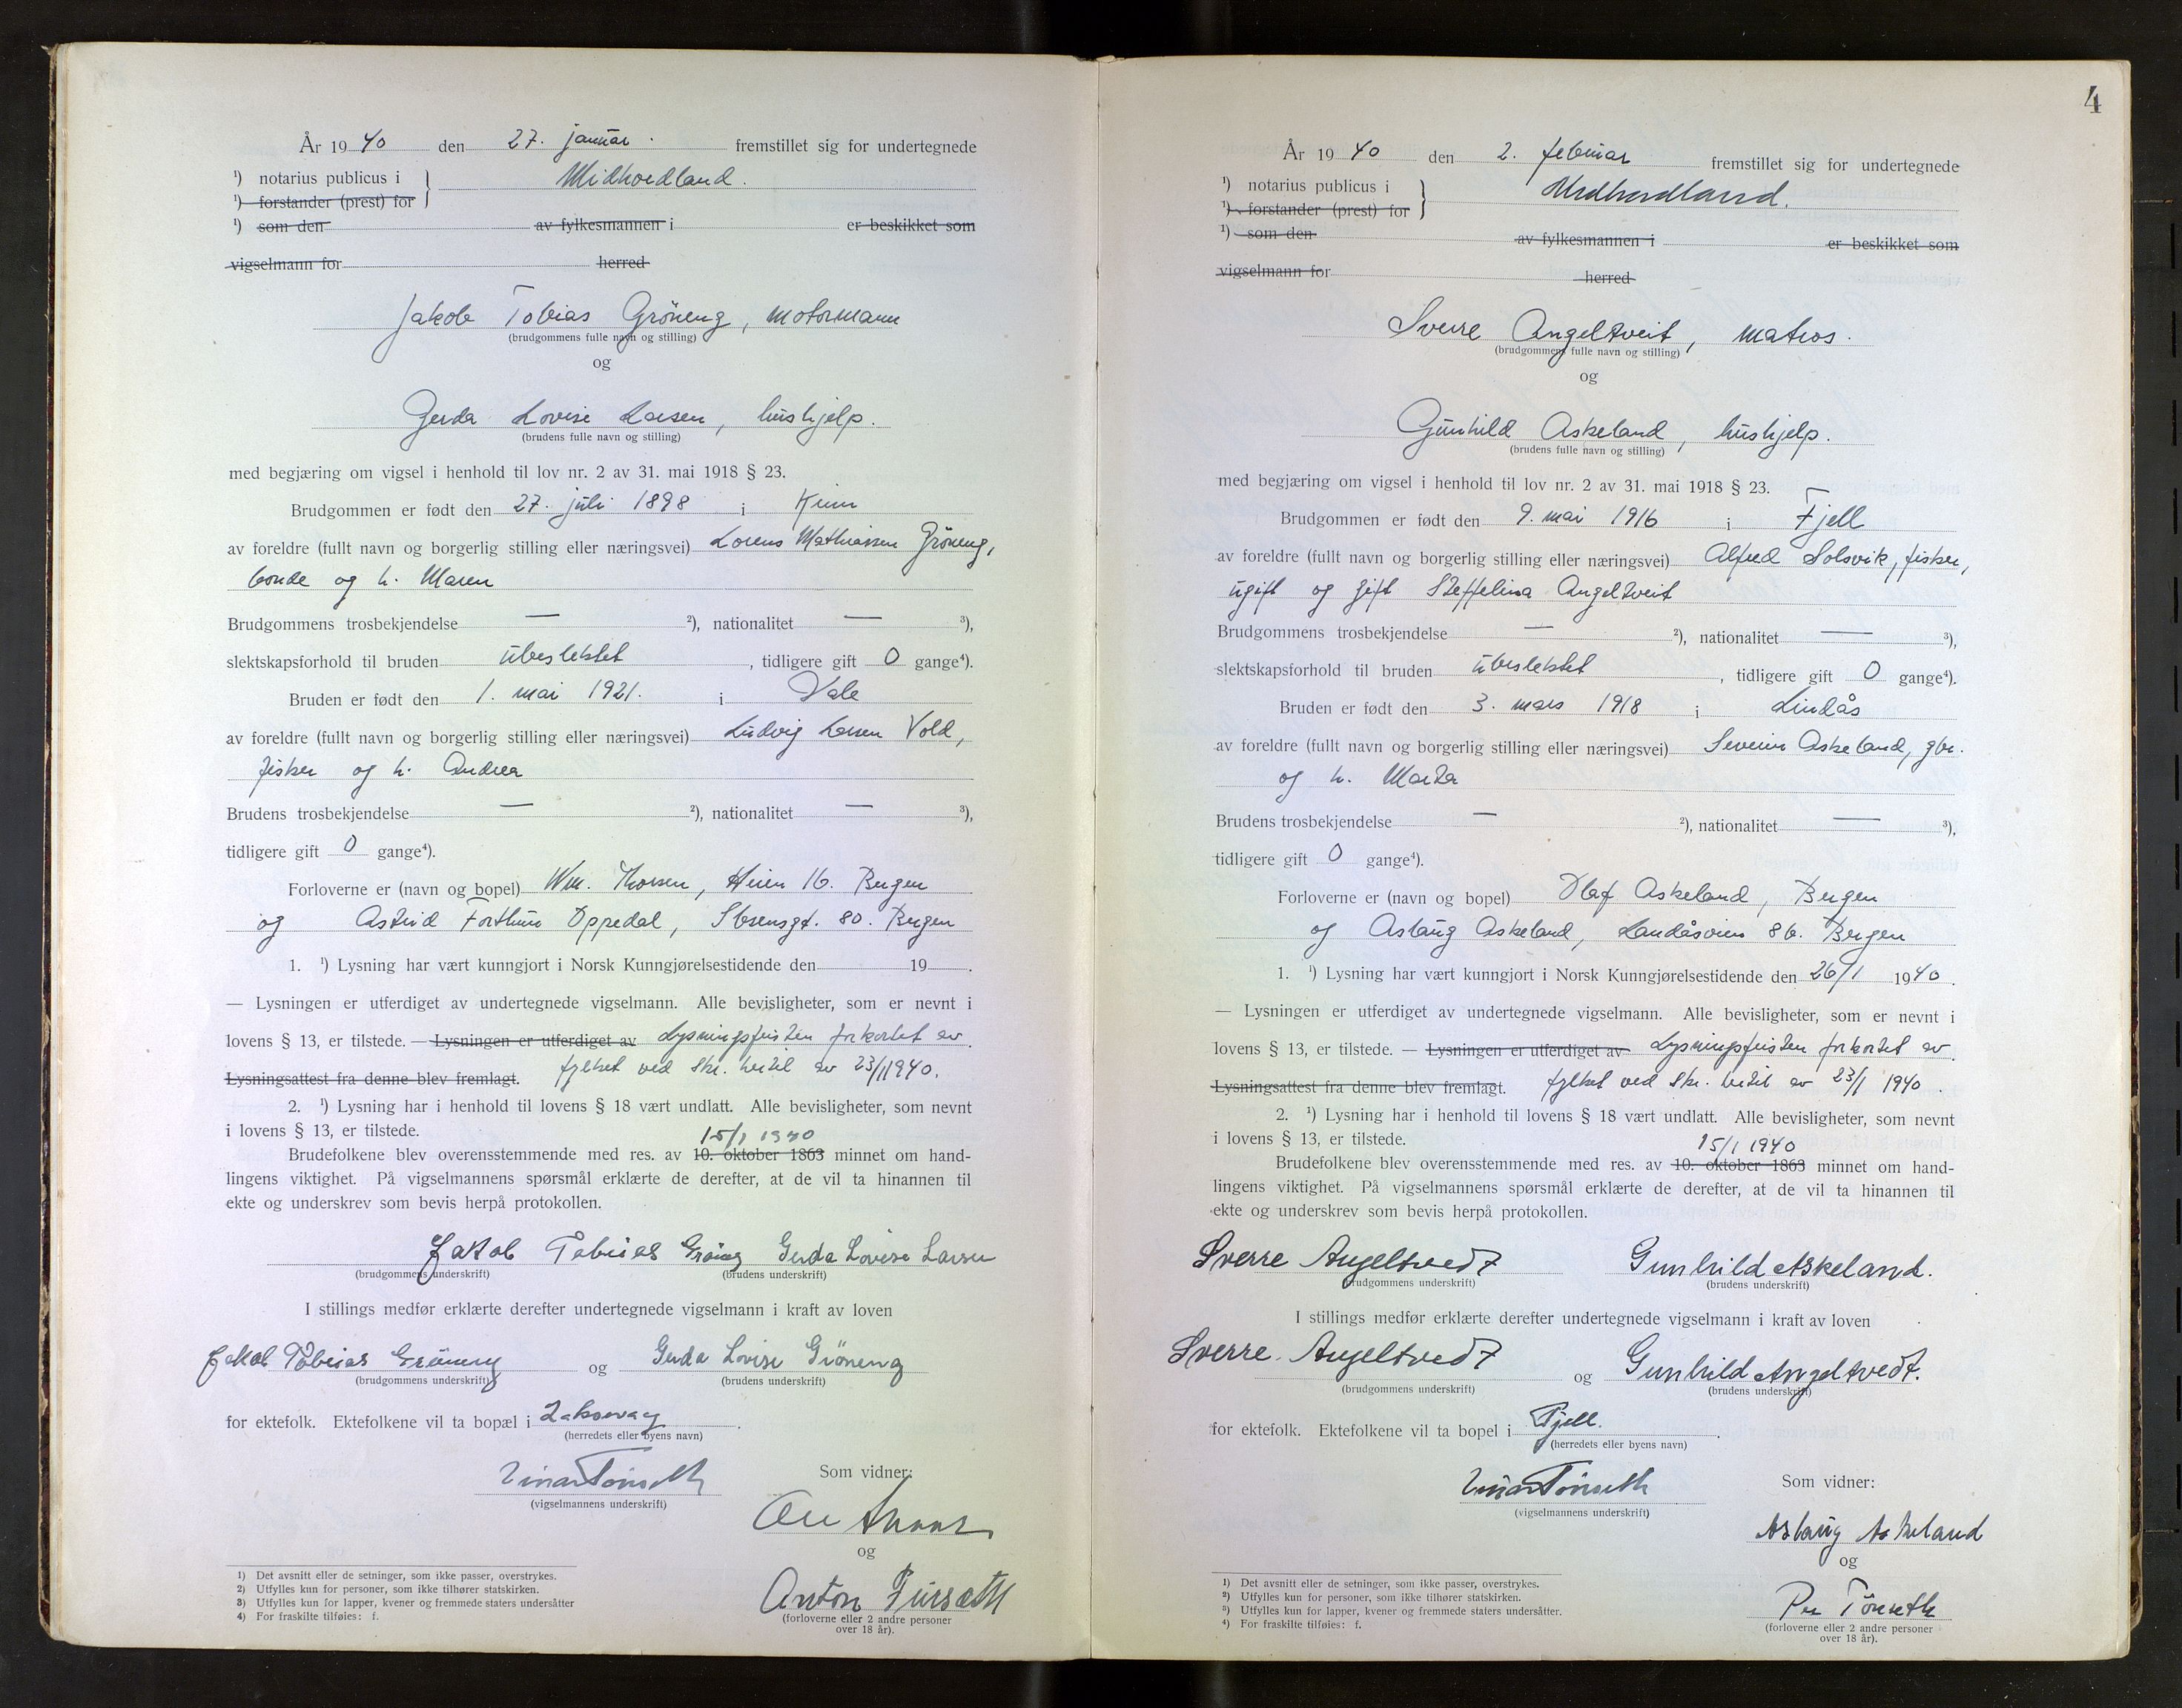 År 1940 den 27. januar. fremstillet sig for undertegnede
¹) notarius publicus i } Midhordland.
¹) forstander (prest) for
¹) som den av fylkesmannen i er beskikket som
vigselmann for herred
Jakob Tobias Gröneng, motormann
(brudgommens fulle navn og stilling)
og
Gerda Lovise Larsen, hushjelp.
(brudens fulle navn og stilling)
med begjæring om vigsel i henhold til lov nr. 2 av 31. mai 1918 § 23.
Brudgommen er født den 27. juli 1898 i Kinn
av foreldre (fullt navn og borgerlig stilling eller næringsvei) Lorens Mathiassen Gröneng,
bonde og h. Maren
Brudgommens trosbekjendelse — ²), nationalitet — ³),
slektskapsforhold til bruden ubeslektet, tidligere gift 0 gange⁴).
Bruden er født den 1. mai 1921. i Dale
av foreldre (fullt navn og borgerlig stilling eller næringsvei) Ludvig Larsen Vold,
fisker og h. Andrea
Brudens trosbekjendelse — ²), nationalitet — ³),
tidligere gift 0 gange⁴).
Forloverne er (navn og bopel) Wm. Thorsen, 16. Bergen
og Astrid Oppedal, Ibsensgt. 80. Bergen
1. ¹) Lysning har vært kunngjort i Norsk Kunngjørelsestidende den 19 .
— Lysningen er utferdiget av undertegnede vigselmann. Alle bevisligheter, som er nevnt i
lovens § 13, er tilstede. — Lysningen er utferdiget av Lysningsfristen forkortet av
Lysningsattest fra denne blev fremlagt. fylket ved skr. hertil av 23/1 1940.
2. ¹) Lysning har i henhold til lovens § 18 vært undlatt. Alle bevisligheter, som nevnt
i lovens § 13, er tilstede.
15/1 1940
Brudefolkene blev overensstemmende med res. av 10. oktober 1863 minnet om hand-
lingens viktighet. På vigselmannens spørsmål erklærte de derefter, at de vil ta hinannen til
ekte og underskrev som bevis herpå protokollen.
Jakob Tobias Gröneng Gerda Lovise Larsen
(brudgommens underskrift) (brudens underskrift)
I stillings medfør erklærte derefter undertegnede vigselmann i kraft av loven
Jakob Tobias Gröneng og Gerda Lovise Gröneng
(brudgommens underskrift) (brudens underskrift)
for ektefolk. Ektefolkene vil ta bopæl i Laksevaag.
(herredets eller byens navn)
Einar Tönseth
(vigselmannens underskrift)
Som vidner:
og
Anton
(forloverne eller 2 andre personer
over 18 år).
1) Det avsnitt eller de setninger, som ikke passer, overstrykes.
2) Utfylles kun for personer, som ikke tilhører statskirken.
3) Utfylles kun for lapper, kvener og fremmede staters undersåtter
4) For fraskilte tilføies: f.
4
År 1940 den 2. februar fremstillet sig for undertegnede
¹) notarius publicus i } Midhordland.
¹) forstander (prest) for
¹) som den av fylkesmannen i er beskikket som
vigselmann for herred
Sverre Angeltveit, matros.
(brudgommens fulle navn og stilling)
og
Gunhild Askeland, hushjelp.
(brudens fulle navn og stilling)
med begjæring om vigsel i henhold til lov nr. 2 av 31. mai 1918 § 23.
Brudgommen er født den 9. mai 1916 i Fjell
av foreldre (fullt navn og borgerlig stilling eller næringsvei) Alfred Solsvik, fisker,
ugift og gift Steffelina Angeltveit
Brudgommens trosbekjendelse — ²), nationalitet — ³),
slektskapsforhold til bruden ubeslektet, tidligere gift 0 gange⁴).
Bruden er født den 3. mars 1918 i Lindås
av foreldre (fullt navn og borgerlig stilling eller næringsvei) Severin Askeland, gbr.
og h. Marta
Brudens trosbekjendelse — ²), nationalitet — ³),
tidligere gift 0 gange⁴).
Forloverne er (navn og bopel) Olaf Askeland, Bergen
og Aslaug Askeland, Landåsveien 86. Bergen
1. ¹) Lysning har vært kunngjort i Norsk Kunngjørelsestidende den 26/1 1940.
— Lysningen er utferdiget av undertegnede vigselmann. Alle bevisligheter, som er nevnt i
lovens § 13, er tilstede. — Lysningen er utferdiget av Lysningsfristen forkortet av
Lysningsattest fra denne blev fremlagt. fylket ved skr. hertil av 23/1 1940.
2. ¹) Lysning har i henhold til lovens § 18 vært undlatt. Alle bevisligheter, som nevnt
i lovens § 13, er tilstede.
15/1 1940
Brudefolkene blev overensstemmende med res. av 10. oktober 1863 minnet om hand-
lingens viktighet. På vigselmannens spørsmål erklærte de derefter, at de vil ta hinannen til
ekte og underskrev som bevis herpå protokollen.
Sverre Angeltvedt Gunhild Askeland.
(brudgommens underskrift) (brudens underskrift)
I stillings medfør erklærte derefter undertegnede vigselmann i kraft av loven
Sverre. Angeltvedt og Gunhild Angeltvedt.
(brudgommens underskrift) (brudens underskrift)
for ektefolk. Ektefolkene vil ta bopel i Fjell.
(herredets eller byens navn)
Einar Tönseth
(vigselmannens underskrift)
Som vidner:
Aslaug Askeland
og
Per Tönseth
(forloverne eller 2 andre personer
over 18 år).
1) Det avsnitt eller de setninger, som ikke passer, overstrykes.
2) Utfylles kun for personer, som ikke tilhører statskirken.
3) Utfylles kun for lapper, kvener og fremmede staters undersåtter.
4) For fraskilte tilføies: f.